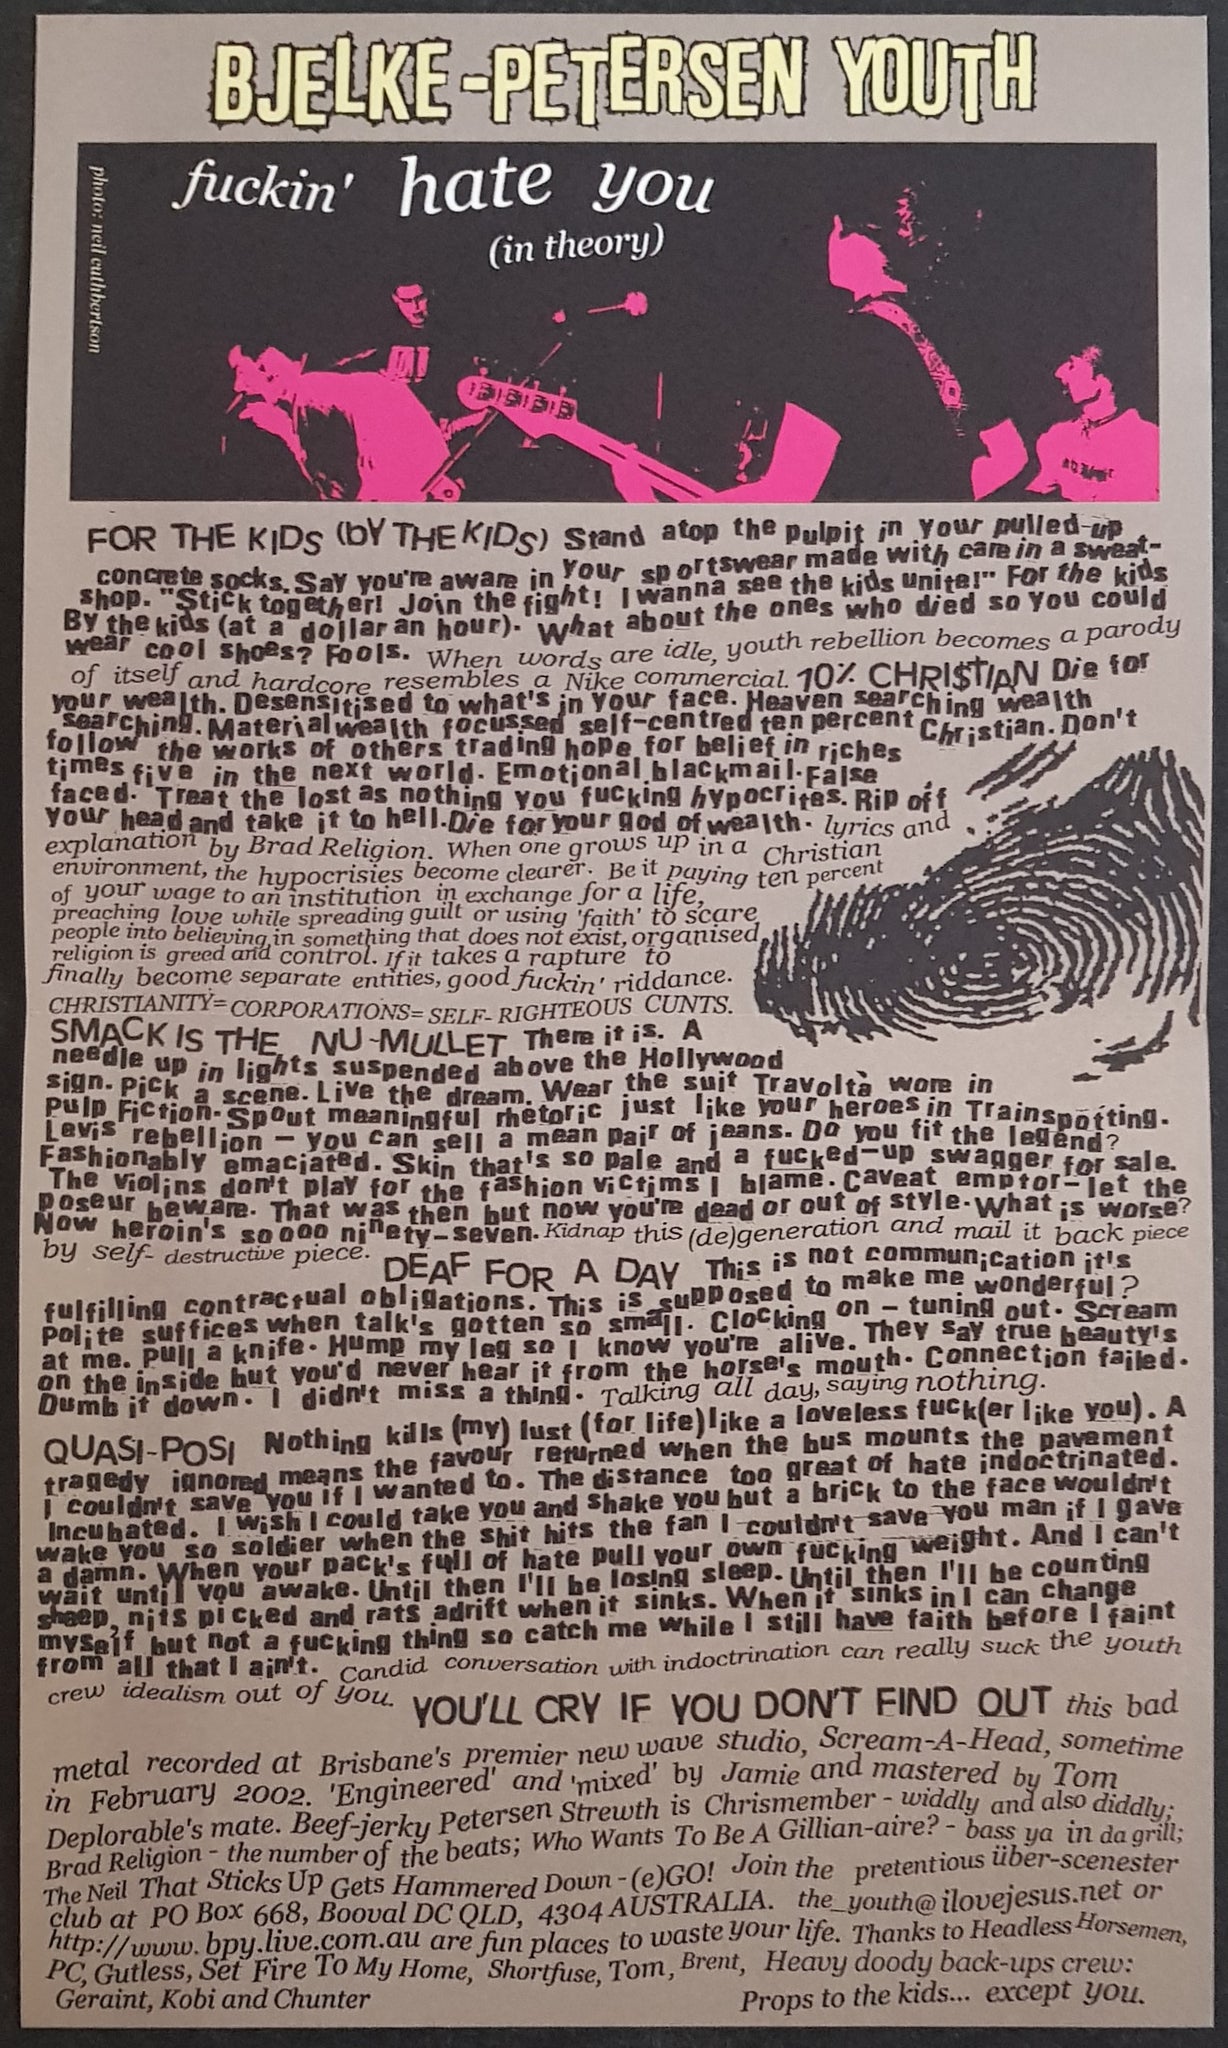 BJELKE-PETERSEN YOUTH
photo: neil cuthbertson
fuckin' hate you
(in theory)
FOR THE KIDS (bY THE KIDS) Stand atop the pulpit in your pulled-up
concrete socks. Say you're aware in your sportswear made with care in a sweat-
shop. "Stick together! Join the fight! I wanna see the kids unite!" For the kids
By the kids (at a dollar an hour). What about the ones who died so you could
wear cool shoes? Fools. When words are idle, youth rebellion becomes a parody
of itself and hardcore resembles a Nike commercial. 10% CHRI$TIAN Die for
your wealth. Desensitised to what's in your face. Heaven searching wealth
searching. Material wealth focussed self-centred ten percent Christian. Don't
follow the works of others trading hope for belief in riches
times five in the next world. Emotional blackmail. False
faced. Treat the lost as nothing you fucking hypocrites. Rip off
your head and take it to hell. Die for your god of wealth. lyrics and
explanation by Brad Religion. When one grows up in a Christian
environment, the hypocrisies become clearer. Be it paying ten percent
of your wage to an institution in exchange for a life,
preaching love while spreading guilt or using 'faith' to scare
people into believing in something that does not exist, organised
religion is greed and control. If it takes a rapture to
finally become separate entities, good fuckin' riddance.
CHRISTIANITY=CORPORATIONS=SELF-RIGHTEOUS CUNTS.
SMACK IS THE NU-MULLET There it is. A
needle up in lights suspended above the Hollywood
sign. Pick a scene. Live the dream. Wear the suit Travolta wore in
Pulp Fiction. Spout meaningful rhetoric just like your heroes in Trainspotting.
Levis rebellion – you can sell a mean pair of jeans. Do you fit the legend?
Fashionably emaciated. Skin that's so pale and a fucked-up swagger for sale.
The violins don't play for the fashion victims I blame. Caveat emptor – let the
poseur beware. That was then but now you're dead or out of style. What is worse?
Now heroin's soooo ninety-seven. Kidnap this (de)generation and mail it back piece
by self-destructive piece. DEAF FOR A DAY This is not communication it's
fulfilling contractual obligations. This is supposed to make me wonderful?
Polite suffices when talk's gotten so small. Clocking on – tuning out. Scream
at me. Pull a knife. Hump my leg so I know you're alive. They say true beauty's
on the inside but you'd never hear it from the horse's mouth. Connection failed.
Dumb it down. I didn't miss a thing. Talking all day, saying nothing.
QUASI-POSI Nothing kills (my) lust (for life) like a loveless fuck(er like you). A
tragedy ignored means the favour returned when the bus mounts the pavement
I couldn't save you if I wanted to. The distance too great of hate indoctrinated.
Incubated. I wish I could take you and shake you but a brick to the face wouldn't
wake you so soldier when the shit hits the fan I couldn't save you man if I gave
a damn. When your pack's full of hate pull your own fucking weight. And I can't
wait until you awake. Until then I'll be losing sleep. Until then I'll be counting
sheep, nits picked and rats adrift when it sinks. When it sinks in I can change
myself but not a fucking thing so catch me while I still have faith before I faint
from all that I ain't. Candid conversation with indoctrination can really suck the youth
crew idealism out of you. YOU'LL CRY IF YOU DON'T FIND OUT this bad
metal recorded at Brisbane's premier new wave studio, Scream-A-Head, sometime
in February 2002. 'Engineered' and 'mixed' by Jamie and mastered by Tom
Deplorable's mate. Beef-jerky Petersen Strewth is Chrismember - widdly and also diddly;
Brad Religion - the number of the beats; Who Wants To Be A Gillian-aire? - bass ya in da grill;
The Neil That Sticks Up Gets Hammered Down - (e)GO! Join the pretentious über-scenester
club at PO Box 668, Booval DC QLD, 4304 AUSTRALIA. the_youth@ilovejesus.net or
http://www.bpy.live.com.au are fun places to waste your life. Thanks to Headless Horsemen,
PC, Gutless, Set Fire To My Home, Shortfuse, Tom, Brent, Heavy doody back-ups crew:
Geraint, Kobi and Chunter Props to the kids... except you.